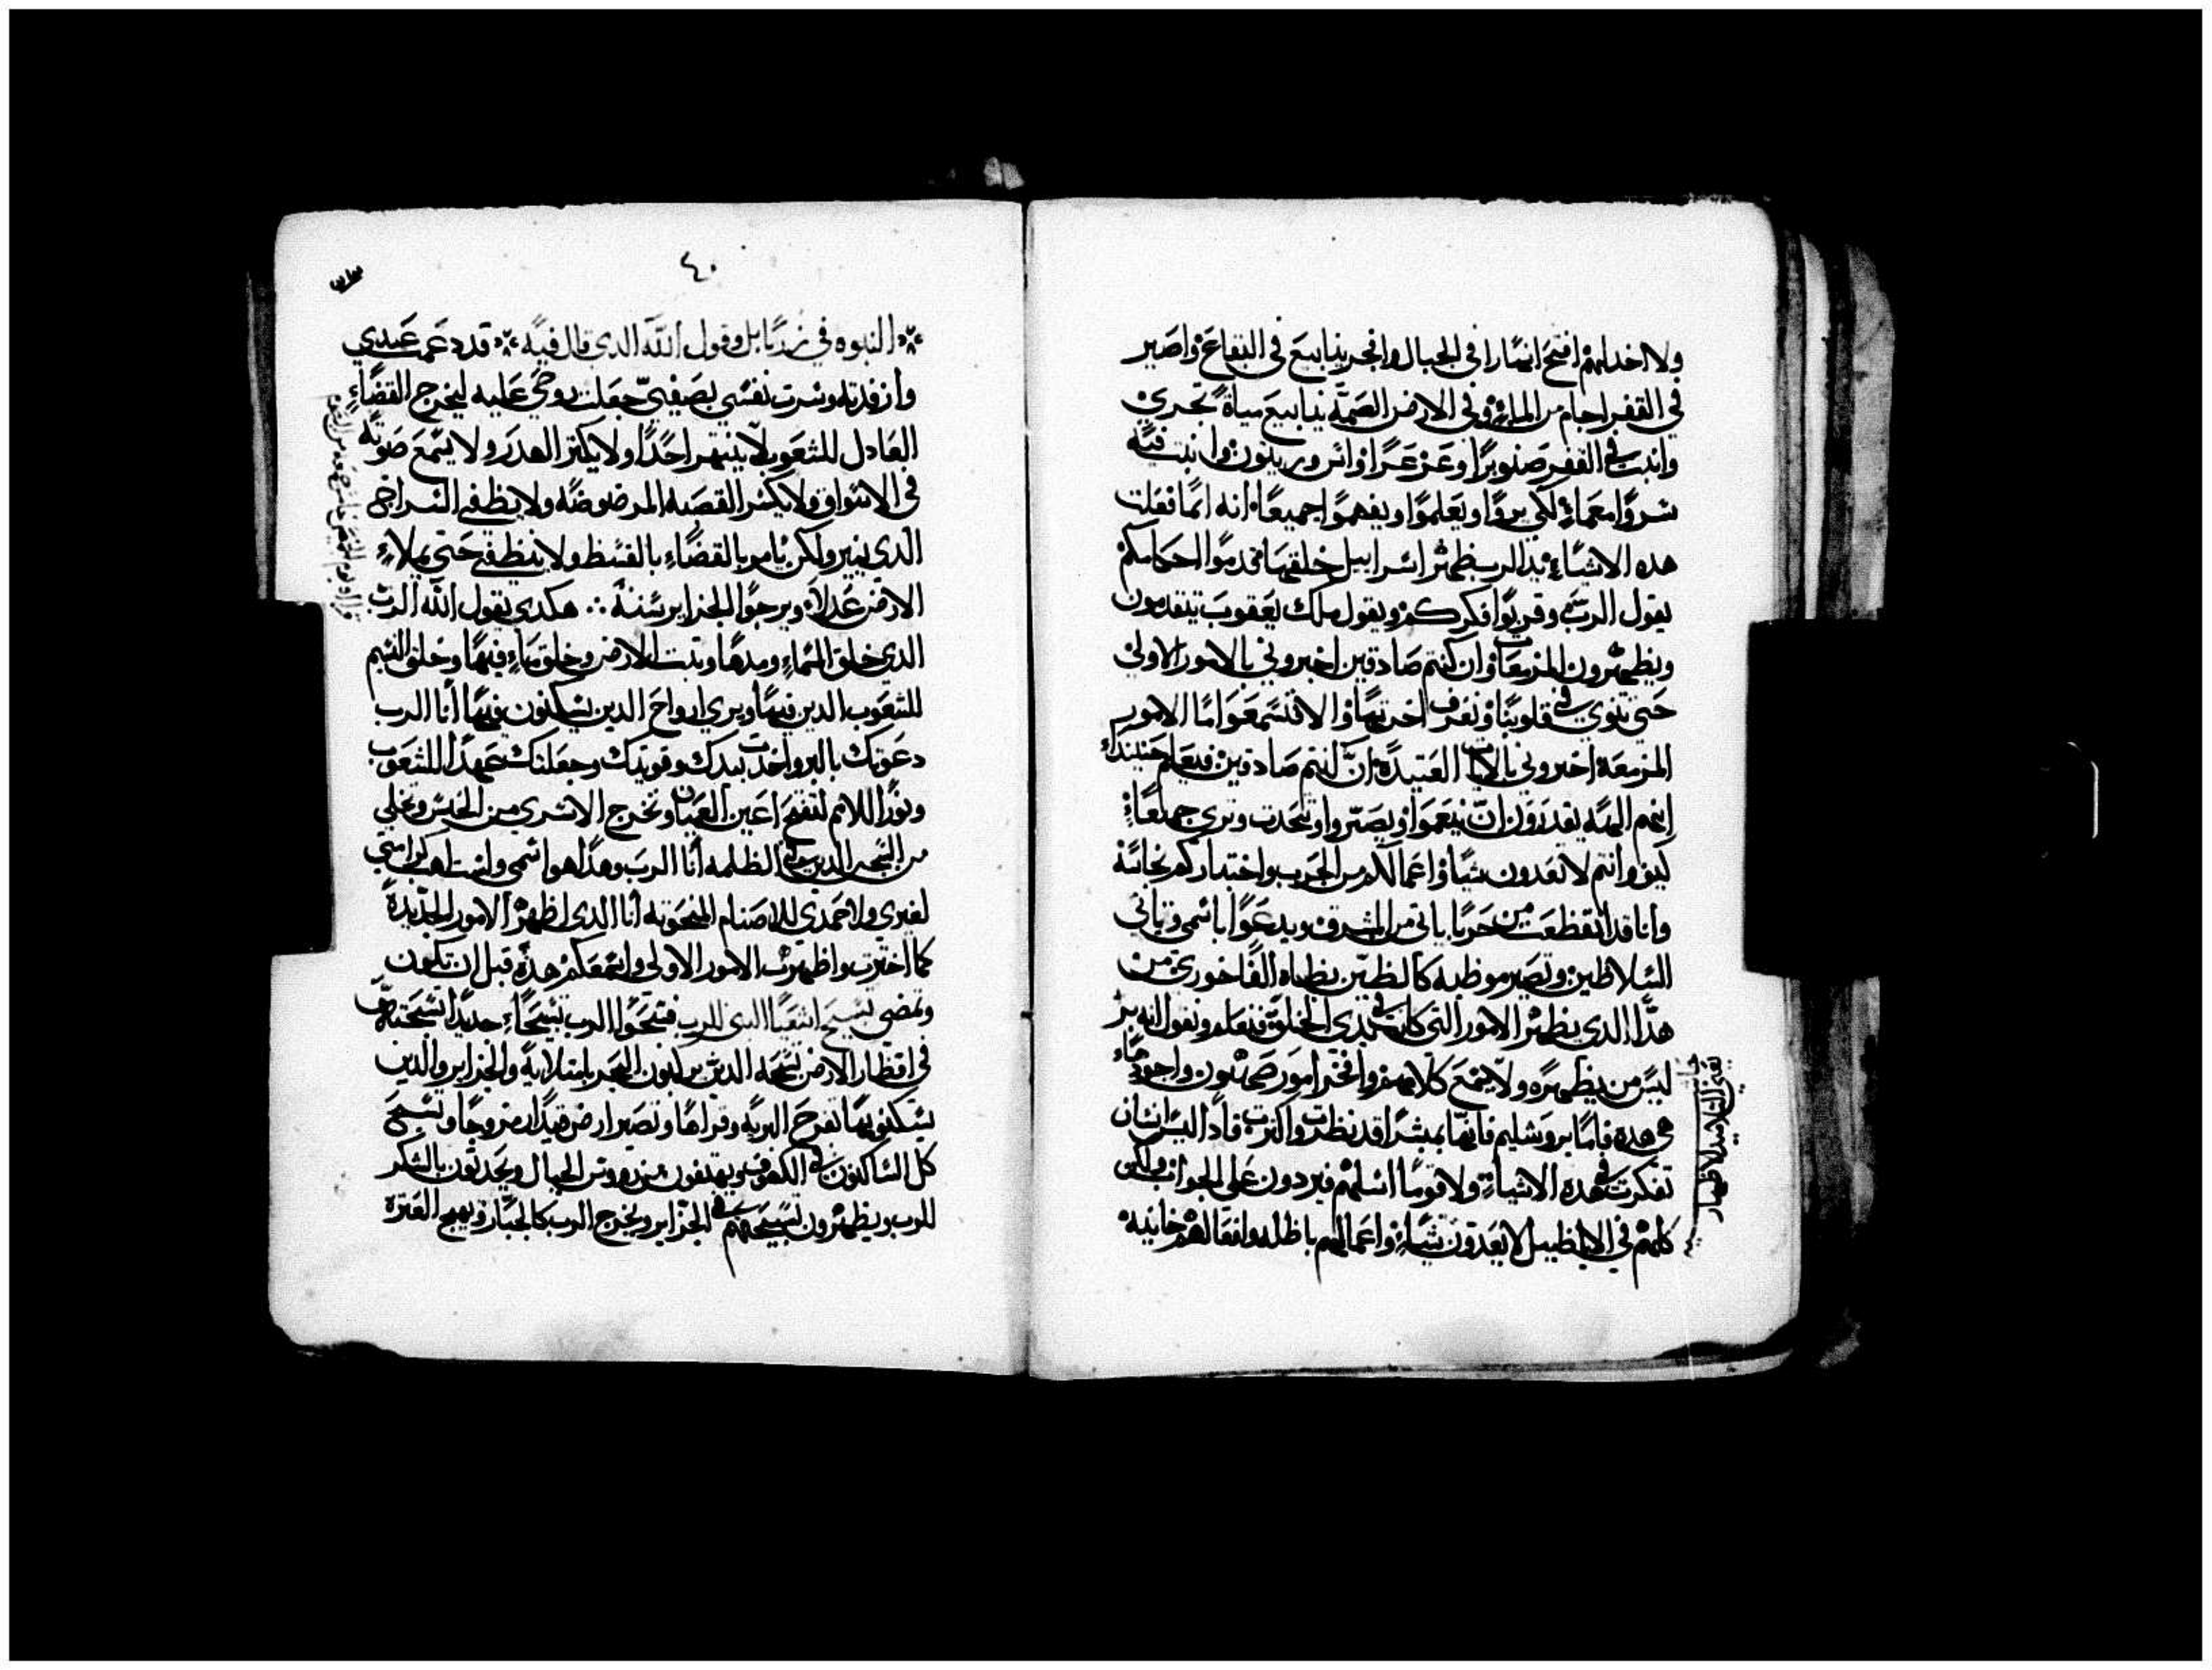 ولا اخدلهم افتح انهارا في الجبال وافجر ينابيع في البقاع واصير
في القفر اجام من الماء وفي الارض الصمه ينابيع مياة تجري
وانبت في القفر صنوبرا وعرعرا واس وزيتون وانبت فيه
سروا معماء لكي يروا ويعلموا ويفهموا جميعا انه انما فعلت
هده الاشياء يد الرب ظهر اسراييل خلقها قدموا احكامكم
يقول الرب وقربوا فكركم ويقول ملك يعقوب يتقدمون
ويظهرون المزمعات وان كنتم صادقين اخبروني بالامور الاولي
حتي ننوي في قلوبنا ونعرف اخرتها والا فتسمعوا اما الامور
المزمعة اخبروني بالايات العتيدة ان كنتم صادقين فيعلم حينيدا
انكم الهه تقدرون ان تنعموا وتصروا ونتحدت ونري جميعا
كيف وانتم لا تعدون شيا واعمالكم من الحرب واختياركم نجاسة
وانا قد ايقظت من حربا ياتي من المشرق ويدعوا باسمي وياتي
السلاطين وتصير موظيه كالطين يطاه الفاخوري من
هدا الدي يظهر الامور التي كانت في بدي الخلقة فنعلم ونقول انه بر
ليس من يظهره ولا يسمع كلامهم وافخر امور صهيون واجودها
هي هده فاما يروشليم فانها بمبشرا قد نظرت واكترت فادا ليس انسان
تفكرت في هده الاشياء ولا قوما اسلهم فيردون علي الجواب ولكن
كلهم في الاباطيل لا يعدون شياء واعمالهم باطله وافعالهم خايبه
٤٠
النبوه في زربابل وقول الله الدي قال فيه قد دعمت عبدي
وارفدته وسرت نفسي بصفيي جعلت روحي عليه ليخرج القضاء
العادل للشعوب لا ينتهر احدا ولا يكتر الهدر ولا يسمع صوته
في الاسواق ولا يكسر القصبه المرضوضه ولا يطفي السراج
الدي ينير ولكن يامر بالقضاء بالقسط ولا ينطفي حتي يملاء
الارض عدلا ويرجوا الجزاير سننه هكدي يقول الله الرب
الدي خلق السماء ومدها وتبت الارض وخلق ماء فيها وخلق النسم
للشعوب الدين فيها ويري ارواح الدين يسكنون فيها انا الرب
دعوتك بالبر واخدت بيدك وقويتك وجعلتك عهدا للشعوب
ونورا للامم لتفتح اعين العميان وتخرج الاسري من الحبس وتخلي
من السجن الدين في الظلمه انا الرب وهدا هو اسمي ولست اهب كرامتي
لغيري ولا حمدي للاصنام المنحوته انا الدي اظهر الامور الجديدة
كما اخبرت واظهرت الامور الاولي واسمعكم هده قبل ان تكون
وتمضي تسبيح اشعيا النبي للرب فسبحوا الرب تسبيحاء جديدا تسبحته
في اقطار الارض تسبحه الدين يركبون البحر بامتلايه والجزاير والدين
يسكنوها تفرح البريه وقراها وتصير ارض قيدار مروجا وتسبح
كل الساكنون في الكهوف ويهتفون من رووس الجبال ويحدتون بالشكر
للرب ويظهرون تسبيحهم في الجزاير ويخرج الرب كالجبار ويهيج الغيرة